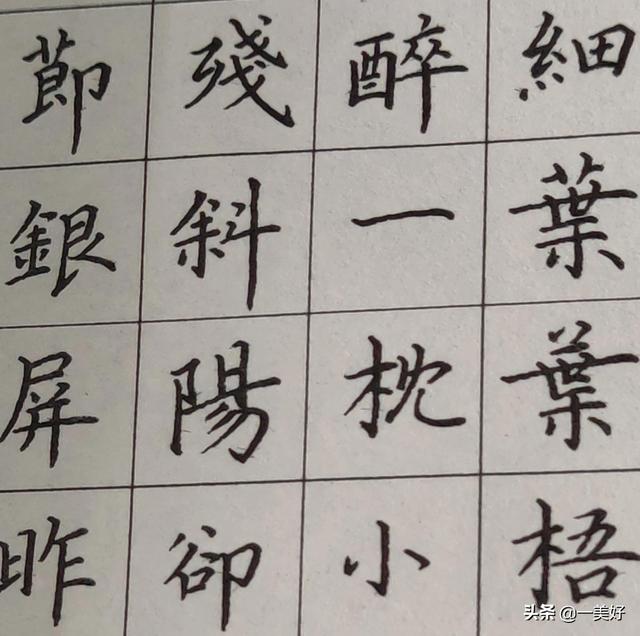 細葉葉梧
醉一枕小
殘斜陽卻
節銀屏昨
头条 @一美好